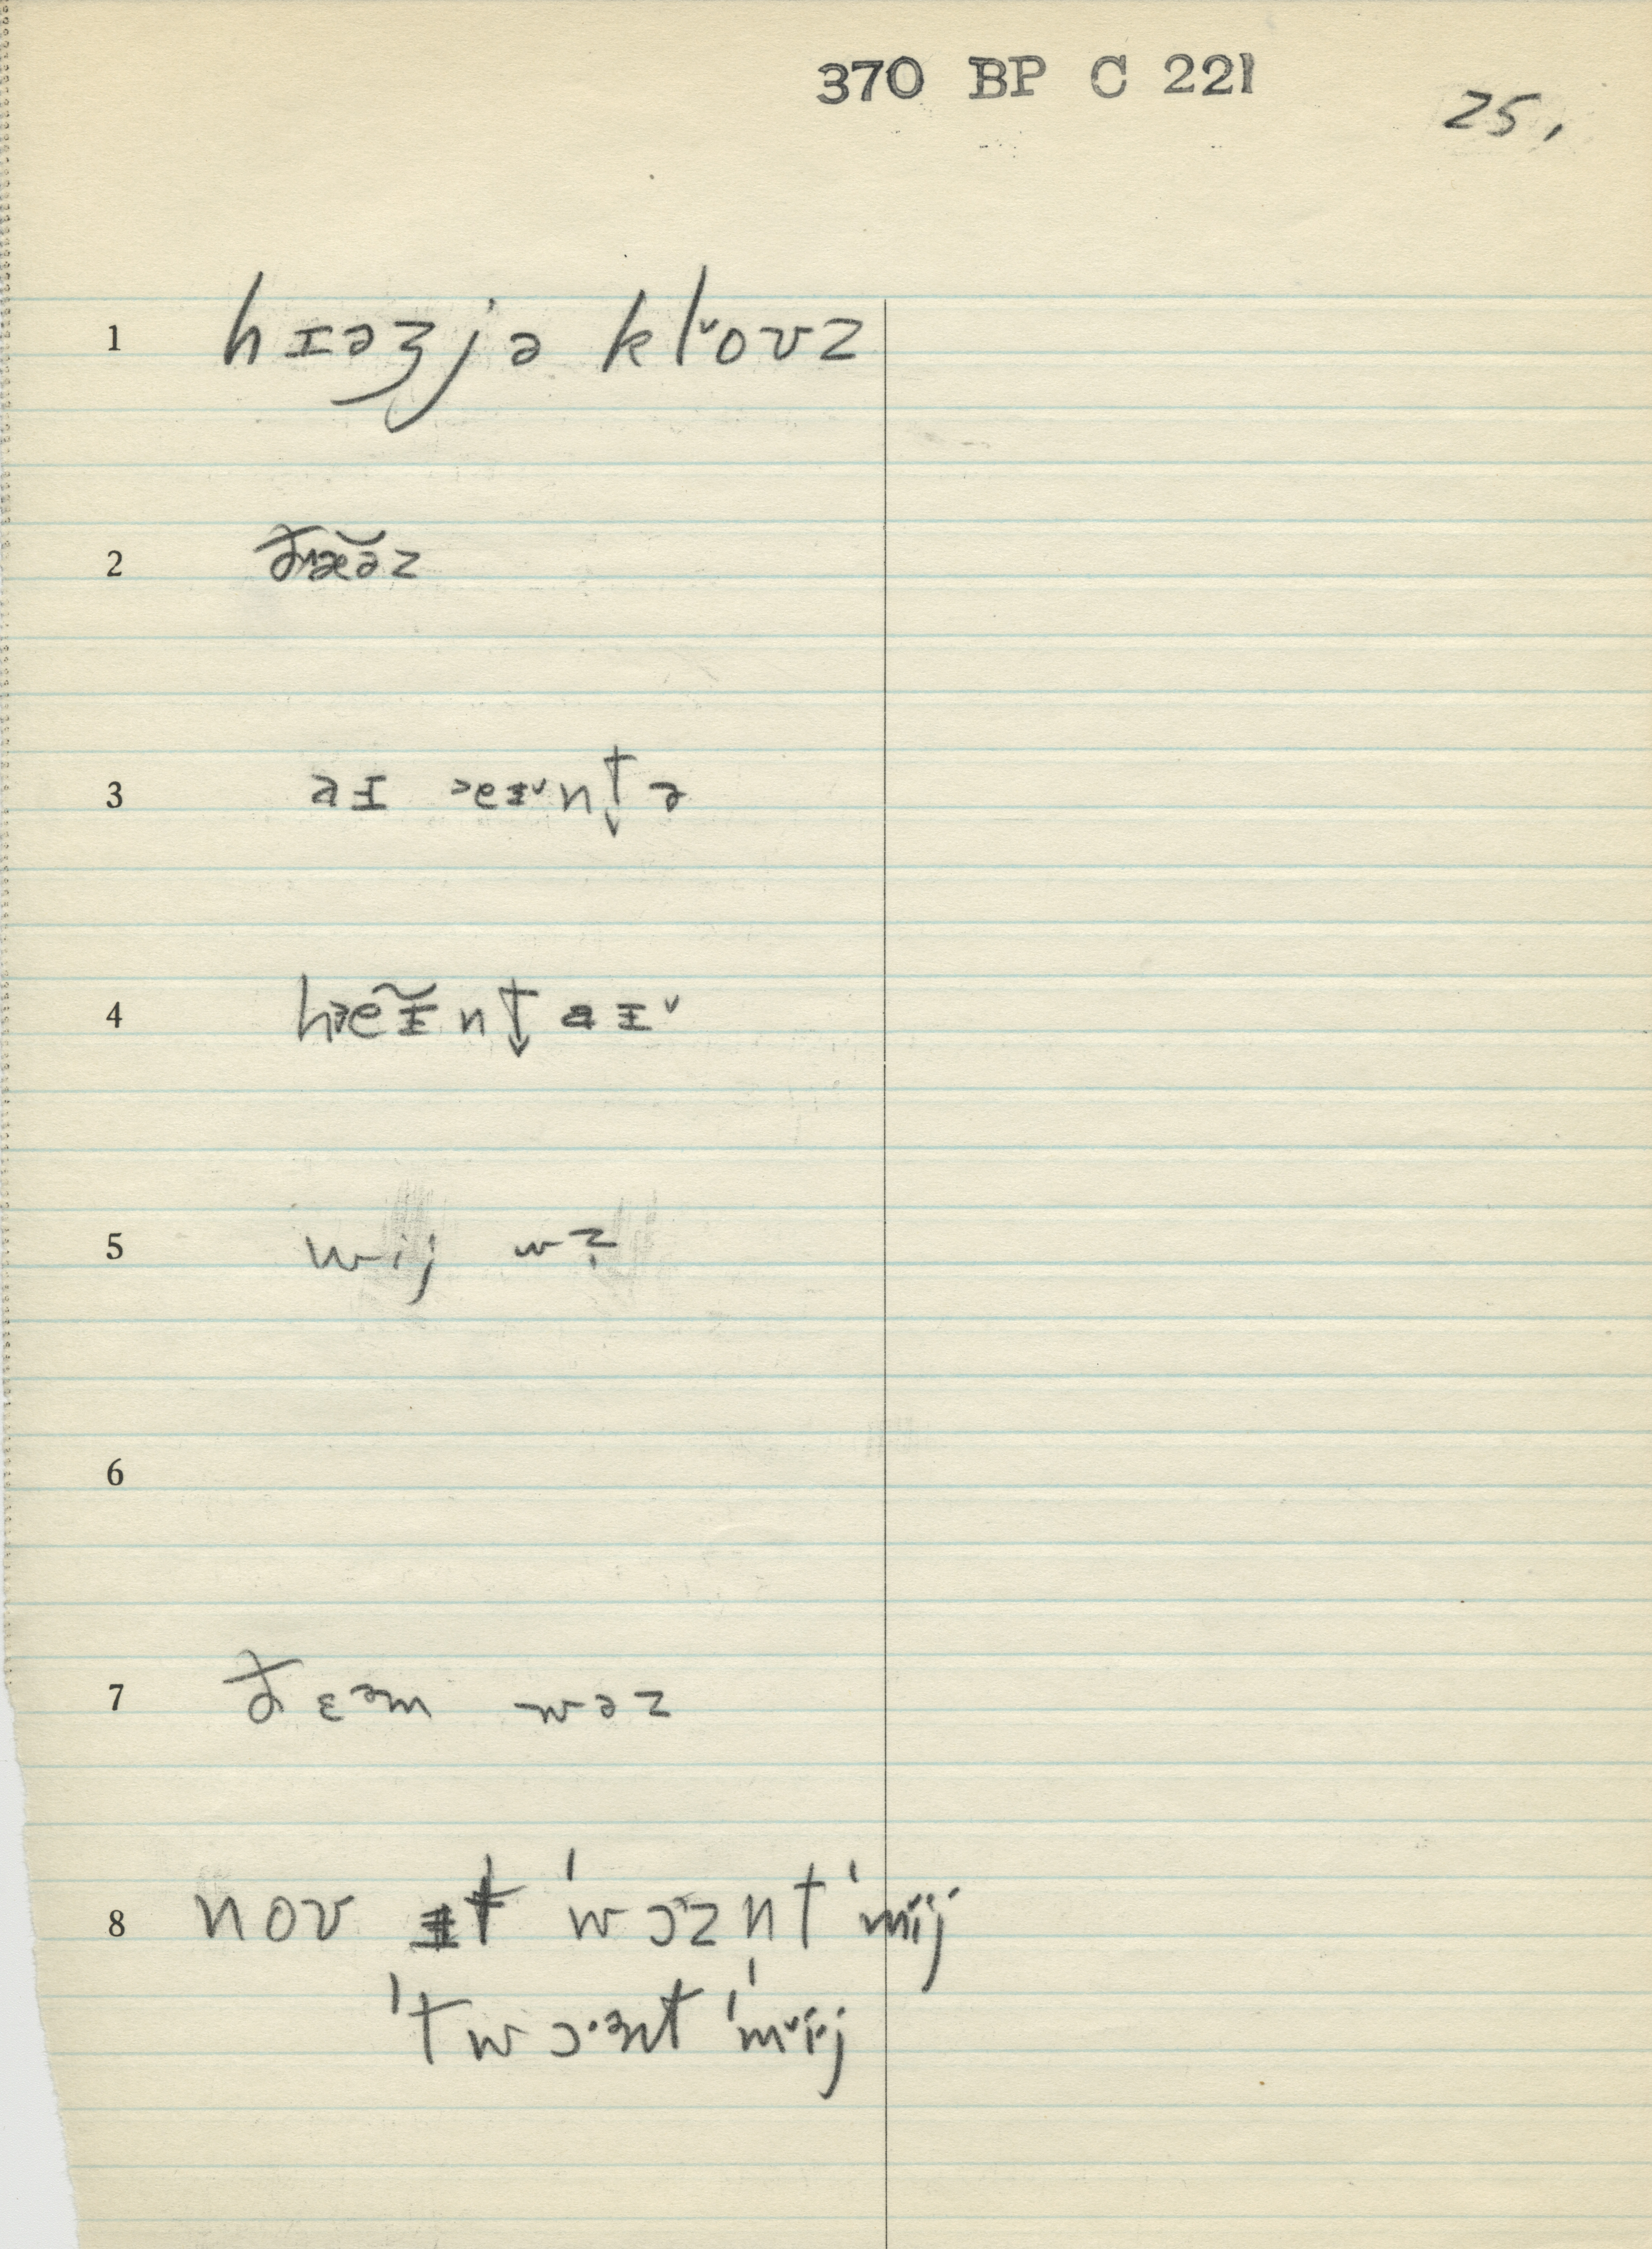 370 BP C 221
25.
1 hɪəʒjə kl˅oʊz
2
3 aɪ ᵊeɪ˅nt̬ə
4 hᵊeɪ̃nt̬ aɪ˅
5 wij wz̩
6
7 ðɛᵊm wəz
8 noʊ ɪt 'wɔᶻznt 'mij
'twɔ·znt 'm˅ij